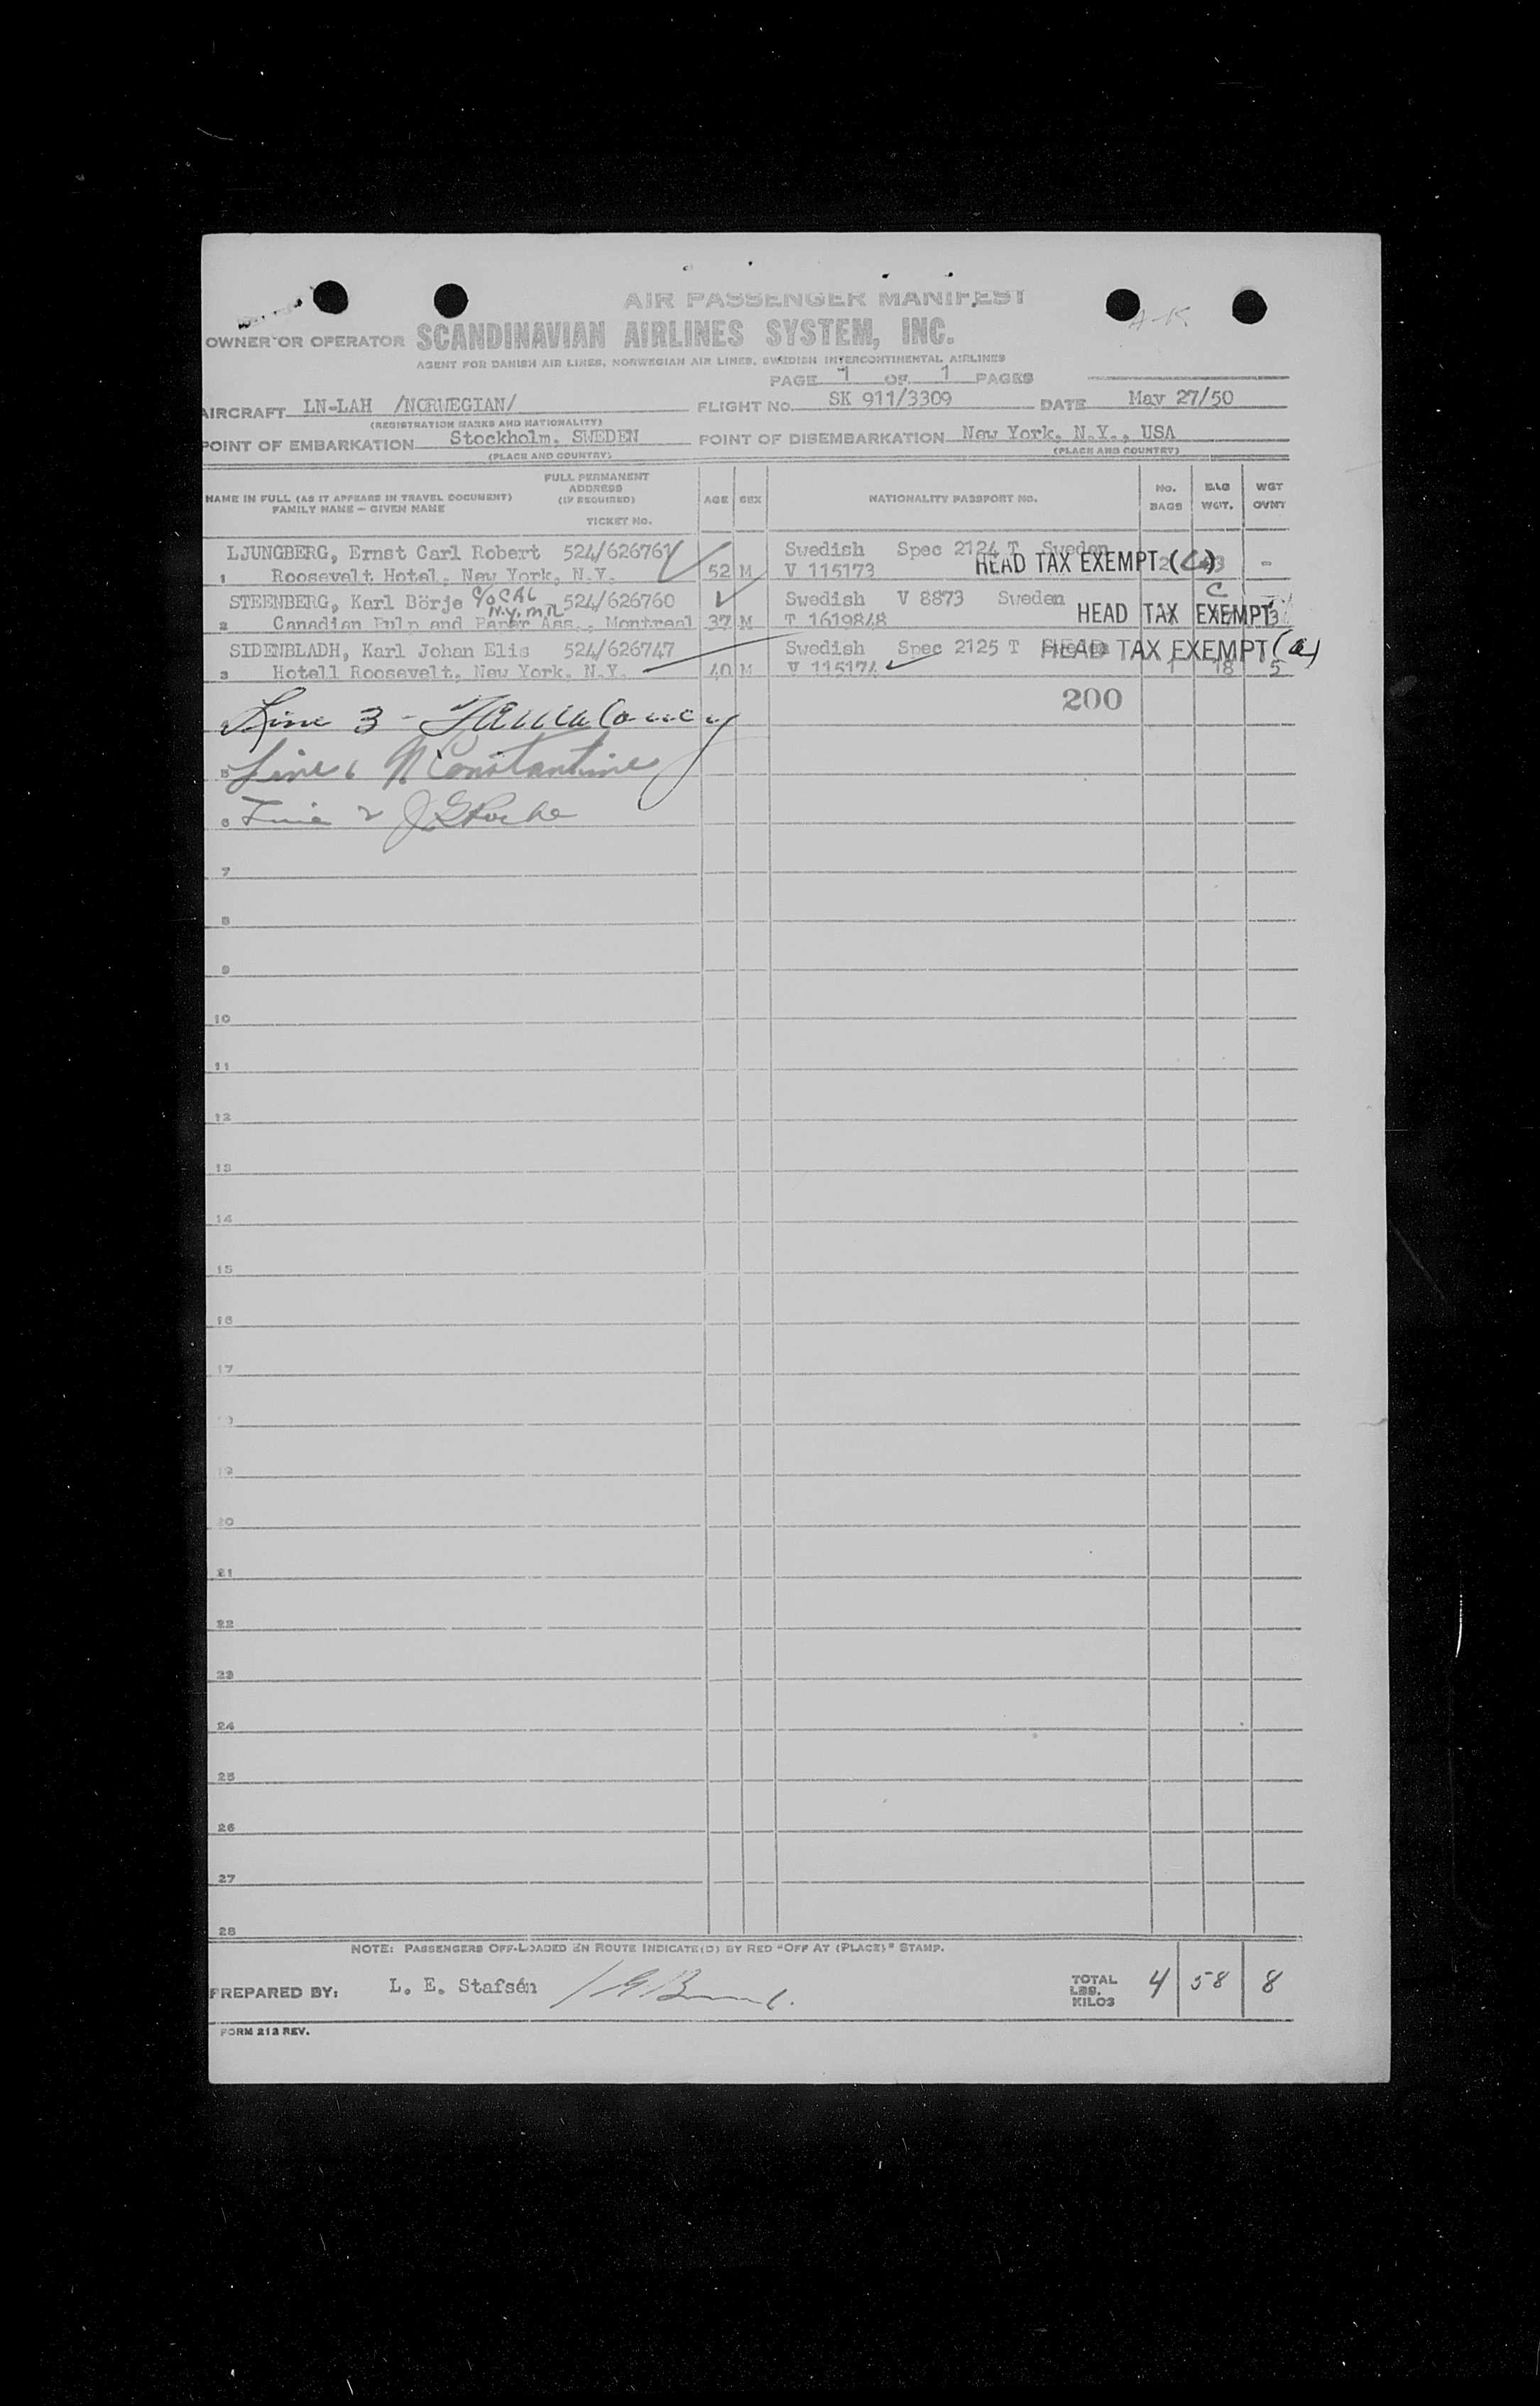 AIR PASSENGER MANIFEST
A-K
OWNER OR OPERATOR SCANDINAVIAN AIRLINES SYSTEM, INC.
AGENT FOR DANISH AIR LINES, NORWEGIAN AIR LINES, SWEDISH INTERCONTINENTAL AIRLINES
PAGE 1 OF 1 PAGES
AIRCRAFT LN-LAH /NORWEGIAN/ FLIGHT No. SK 911/3309 DATE May 27/50
(REGISTRATION MARKS AND NATIONALITY)
POINT OF EMBARKATION Stockholm, SWEDEN POINT OF DISEMBARKATION New York, N.Y., USA
(PLACE AND COUNTRY) (PLACE AND COUNTRY)
NAME IN FULL (AS IT APPEARS IN TRAVEL DOCUMENT) FAMILY NAME – GIVEN NAME FULL PERMANENT ADDRESS (IF REQUIRED) TICKET No. AGE SEX NATIONALITY PASSPORT NO. NO. BAGS BAG WGT. WGT OVWT
LJUNGBERG, Ernst Carl Robert 524/626761 Swedish Spec 2124 T Sweden
1 Roosevelt Hotel, New York, N.Y. 52 M V 115173 HEAD TAX EXEMPT (C) 2 -
STEENBERG, Karl Börje c/o CAL 524/626760 Swedish V 8873 Sweden C
N.Y. MTL
2 Canadian Pulp and Paper Ass., Montreal 37 M T 1619848 HEAD TAX EXEMPT 3
SIDENBLADH, Karl Johan Elis 524/626747 Swedish Spec 2125 T Sweden HEAD TAX EXEMPT (a)
3 Hotell Roosevelt, New York, N.Y. 40 M V 115174 1 18 5
200
Line 3 -
Line 1 N Constantine
Line 2 J G Roche
7
8
9
10
11
12
13
14
15
16
17
19
20
21
22
23
24
25
26
27
28
NOTE: PASSENGERS OFF-LOADED EN ROUTE INDICATE(D) BY RED "OFF AT (PLACE)" STAMP.
PREPARED BY: L. E. Stafsén TOTAL LBS. KILOS 4 58 8
FORM 212 REV.